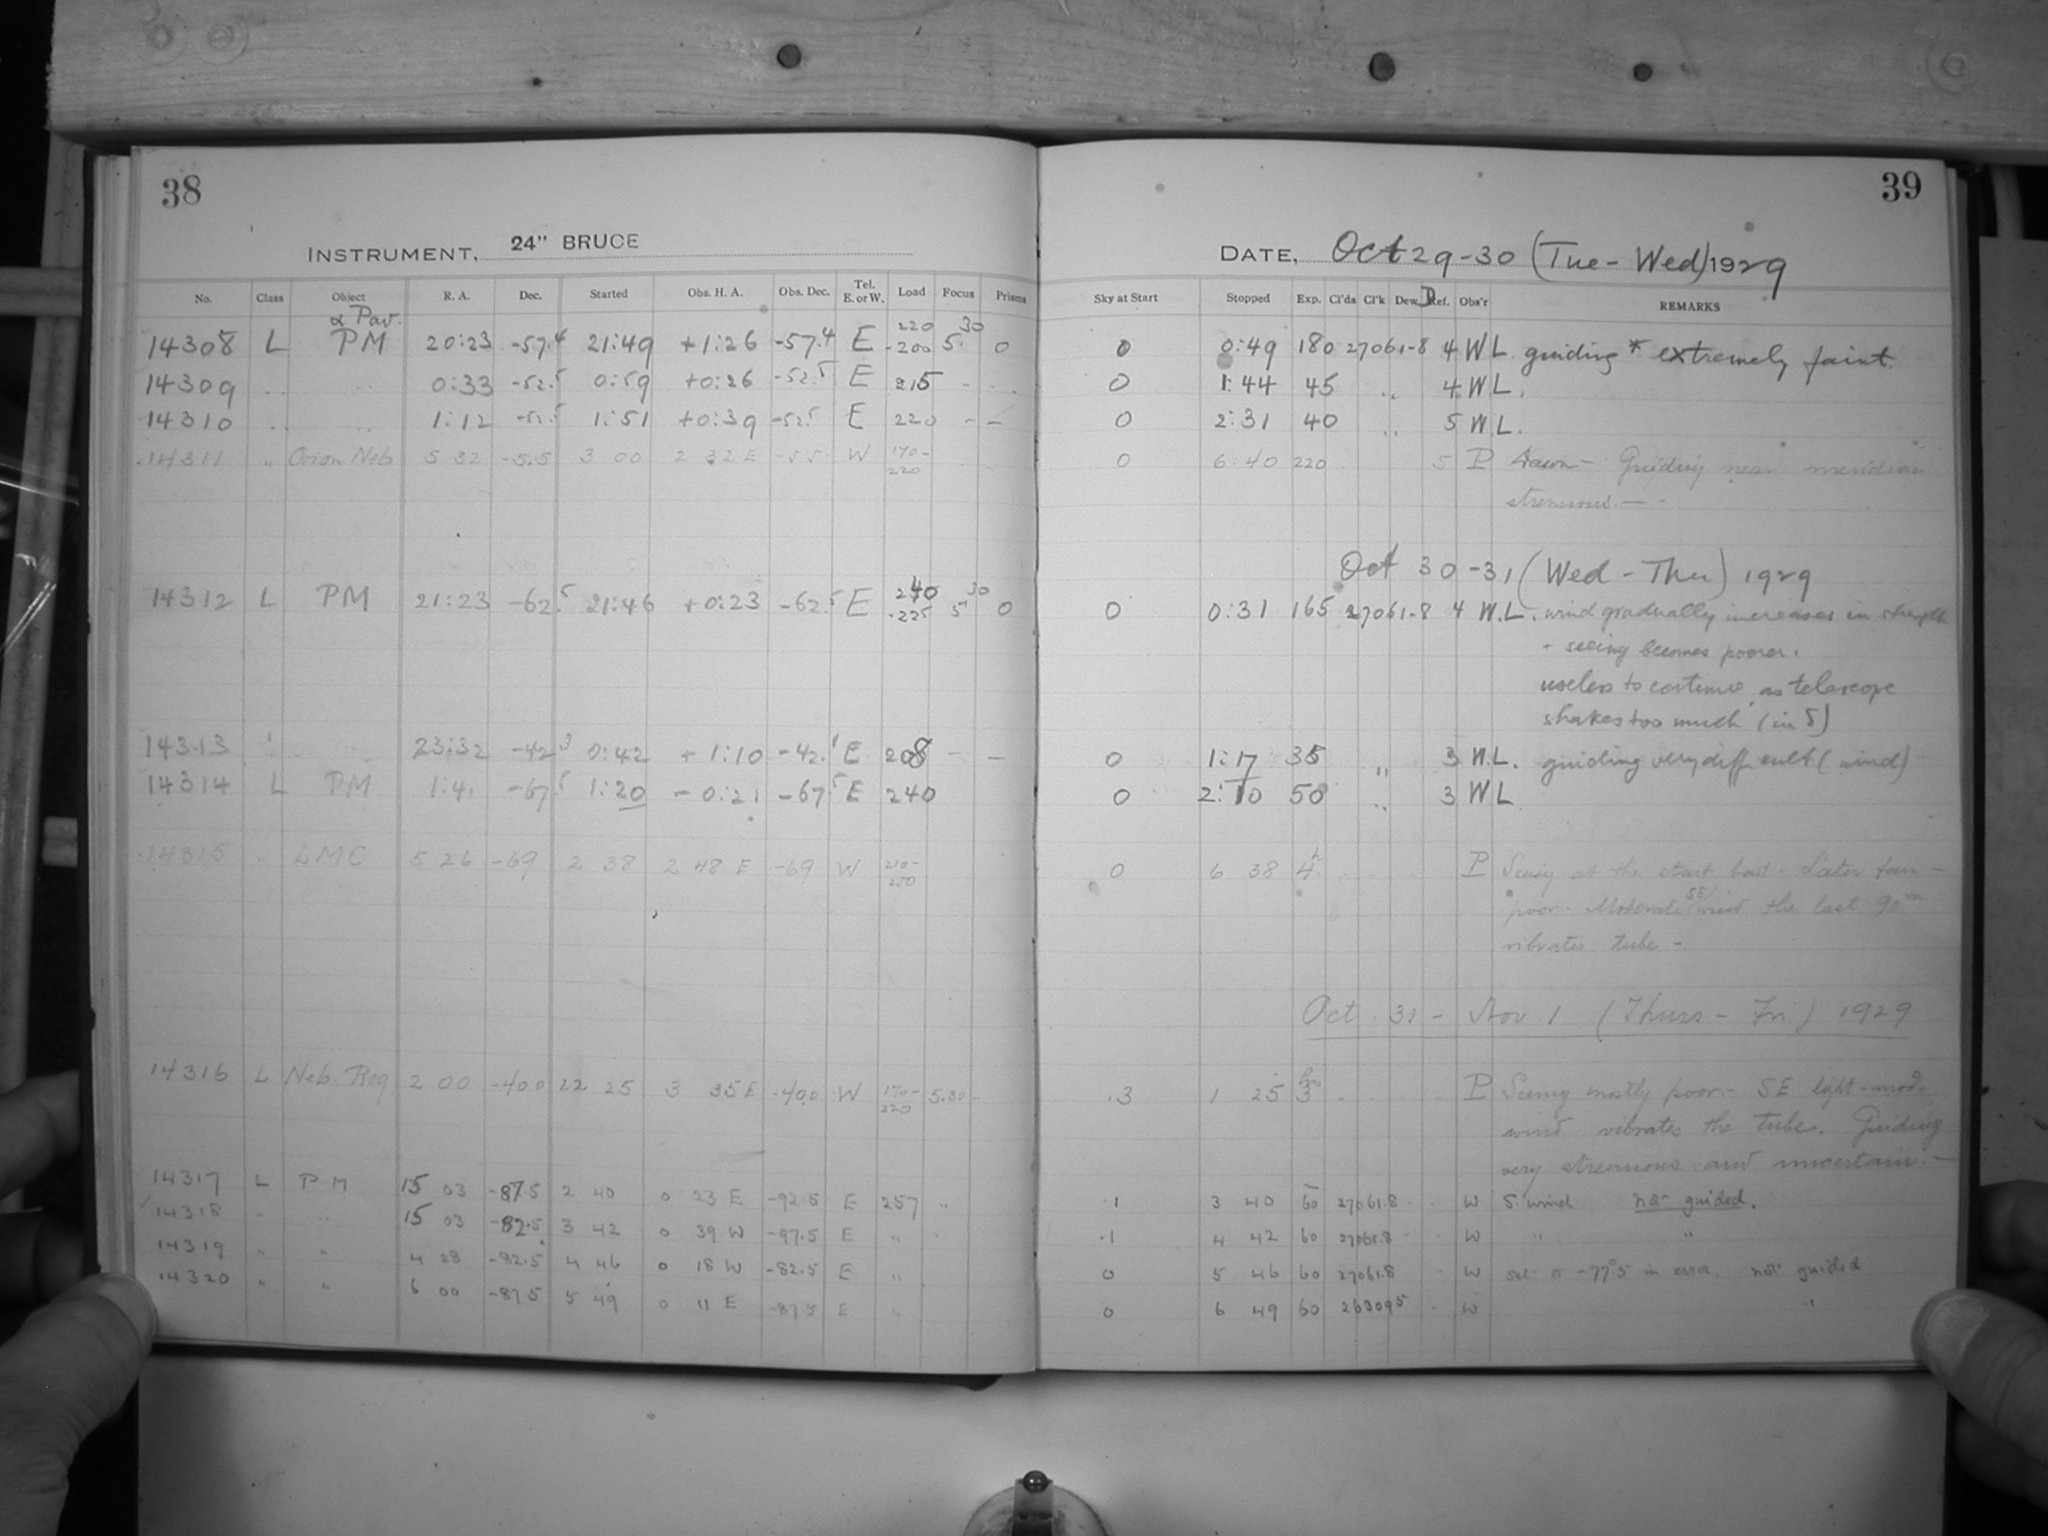 38
INSTRUMENT, 24" BRUCE
No. Class Object R. A. Dec. Started Obs. H. A. Obs. Dec. Tel. E. or W. Load Focus Prisms
α Pav.
14308 L PM 20:23 -57.4 21:49 +1:26 -57.4 E 220 -200 5.30 0
14309 .. .. 0:33 -52.5 0:59 +0:26 -52.5 E 215 -
14310 .. .. 1:12 -52.5 1:51 +0:39 -52.5 E 220 - -
14311 " Orion Neb 5 32 -5.5 3 00 2 32 E -5.5 W 170-220
14312 L PM 21:23 -62.5 21:46 +0:23 -62.5 E 240 -225 5.30 0
14313 23:32 -42.3 0:42 +1:10 -42.1 E 208 - -
14314 L PM 1:41 -67.5 1:20 -0:21 -67.5 E 240
14315 " LMC 5 26 -69 2 38 2 48 E -69 W 210-250
14316 L Neb. Reg 2 00 -40.0 22 25 3 35 E -40.0 W 170-220 5.30 -
14317 L PM 15 03 -87.5 2 40 0 23 E -92.5 E 257 "
14318 " " 15 03 -82.5 3 42 0 39 W -97.5 E "
14319 " " 4 28 -82.5 4 46 0 18 W -82.5 E "
14320 " " 6 00 -87.5 5 49 0 11 E -87.5 E "
39
DATE, Oct 29-30 (Tue - Wed) 1929
Sky at Start Stopped Exp. Cl'ds Cl'k Dew D Ref. Obs'r REMARKS
0 0:49 180 27061-8 4 WL. guiding * extremely faint.
0 1:44 45 .. 4 WL.
0 2:31 40 .. 5 W.L.
0 6:40 220 5 P Dawn - Guiding near meridian
strenuous. -
Oct 30-31 (Wed - Thu) 1929
0 0:31 165 27061-8 4 W.L. wind gradually increases in strength
+ seeing becomes poorer.
useless to continue, as telescope
shakes too much (in δ)
0 1:17 35 " 3 W.L. guiding very difficult (wind)
0 2:10 50 .. 3 WL
0 6 38 4h P Seeing at the start bad - Later fair -
poor - Moderate SE wind the last 90m
vibrates tube -
Oct. 31 - Nov 1 (Thurs - Fri) 1929
.3 1 25 3hrs P Seeing mostly poor - SE light-mod.
wind vibrates the tube. Guiding
very strenuous and uncertain. -
.1 3 40 60 27061.8 - W S. wind not guided.
.1 4 42 60 27061.8 - W " "
0 5 46 60 27061.8 - W set to -77°5 in error not guided
0 6 49 60 263095 - W "